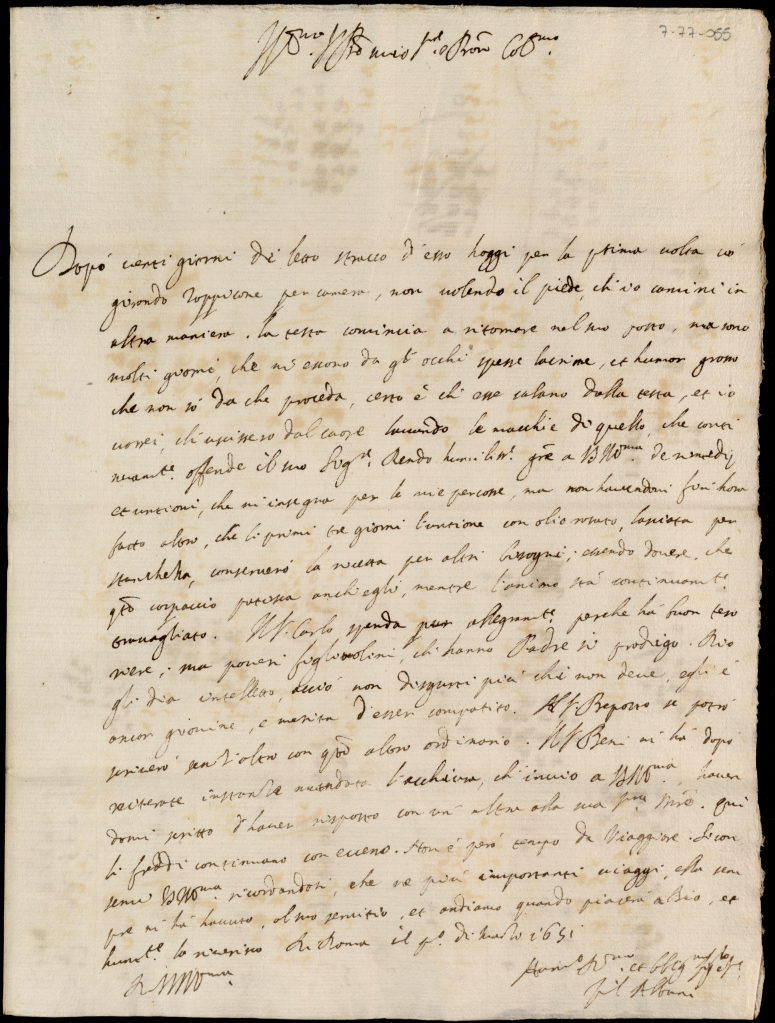 7-77-055
Ill.mo mio Sig.r e Pron Col.mo
Dopò venti giorni di letto stracco d'esso hoggi per la prima volta vò
girando zoppicone per camera, non volendo il piede, ch'io camini in
altra maniera. La testa comincia a ritornare nel suo posto, ma sono
molti giorni, che m'escono da gl'occhi spesse lacrime, et humor grosso
che non sò da che proceda, certo è ch'esse calano dalla testa, et io
vorrei, ch'uscissero dal cuore lavando le macchie di quello, che conti
nuam.te offende il suo Sig.re. Rendo humiliss.e gr̃e a VS Ill.ma de remedij
et untioni, che m'insegna per le mie percosse, ma non havendomi fin hora
fatto altro, che li primi tre giorni l'untione con olio rosato, lasciata per
stanchezza, conserverò la ricetta per altri bisogni; essendo dovere, che
q̃to corpaccio patisca anch'egli, mentre l'animo stà continuam.te
travagliato. Il S.r Carlo spenda pur allegram.te perche hà buon teso
riere; ma poveri figliuolini, ch'hanno Padre sì prodigo. Dio
gli dia intelletto, acciò non disgusti più chi non deve, egli è
ancor giovine, e merita d'esser compatito. Al S.r Preposto se potrò
scriverò senz'altro con q̃to altro ordinario. Il S.r Beni mi hà dopò
reiterate instanze mandato l'acchiusa, ch'invio a VS Ill.ma, haven
domi scritto d'haver risposto con un'altra alla sua S.ra M̃re. Qui
li freddi continuano con eccesso. Non è però tempo da viaggiare. Si con
servi VS Ill.ma ricordandosi, che ne più importanti viaggi, ella sem
pre mi hà havuto, al suo servitio, et andiamo quando piacerà a Dio, et
hum.te la riverisco Di Roma il p.o di Marzo 1651
Di VS Ill.ma
Hum.o Dev.mo et obblig.mo
Albani